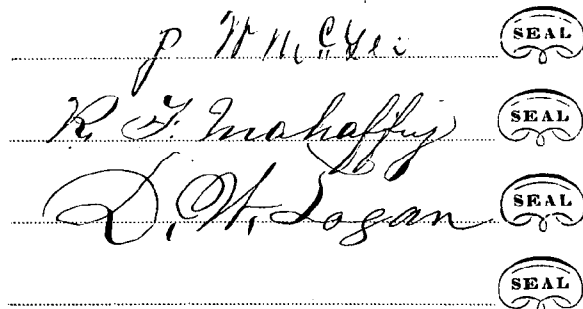 J W McGee SEAL
R. F. Mahaffey SEAL
D. W. Logan SEAL
SEAL